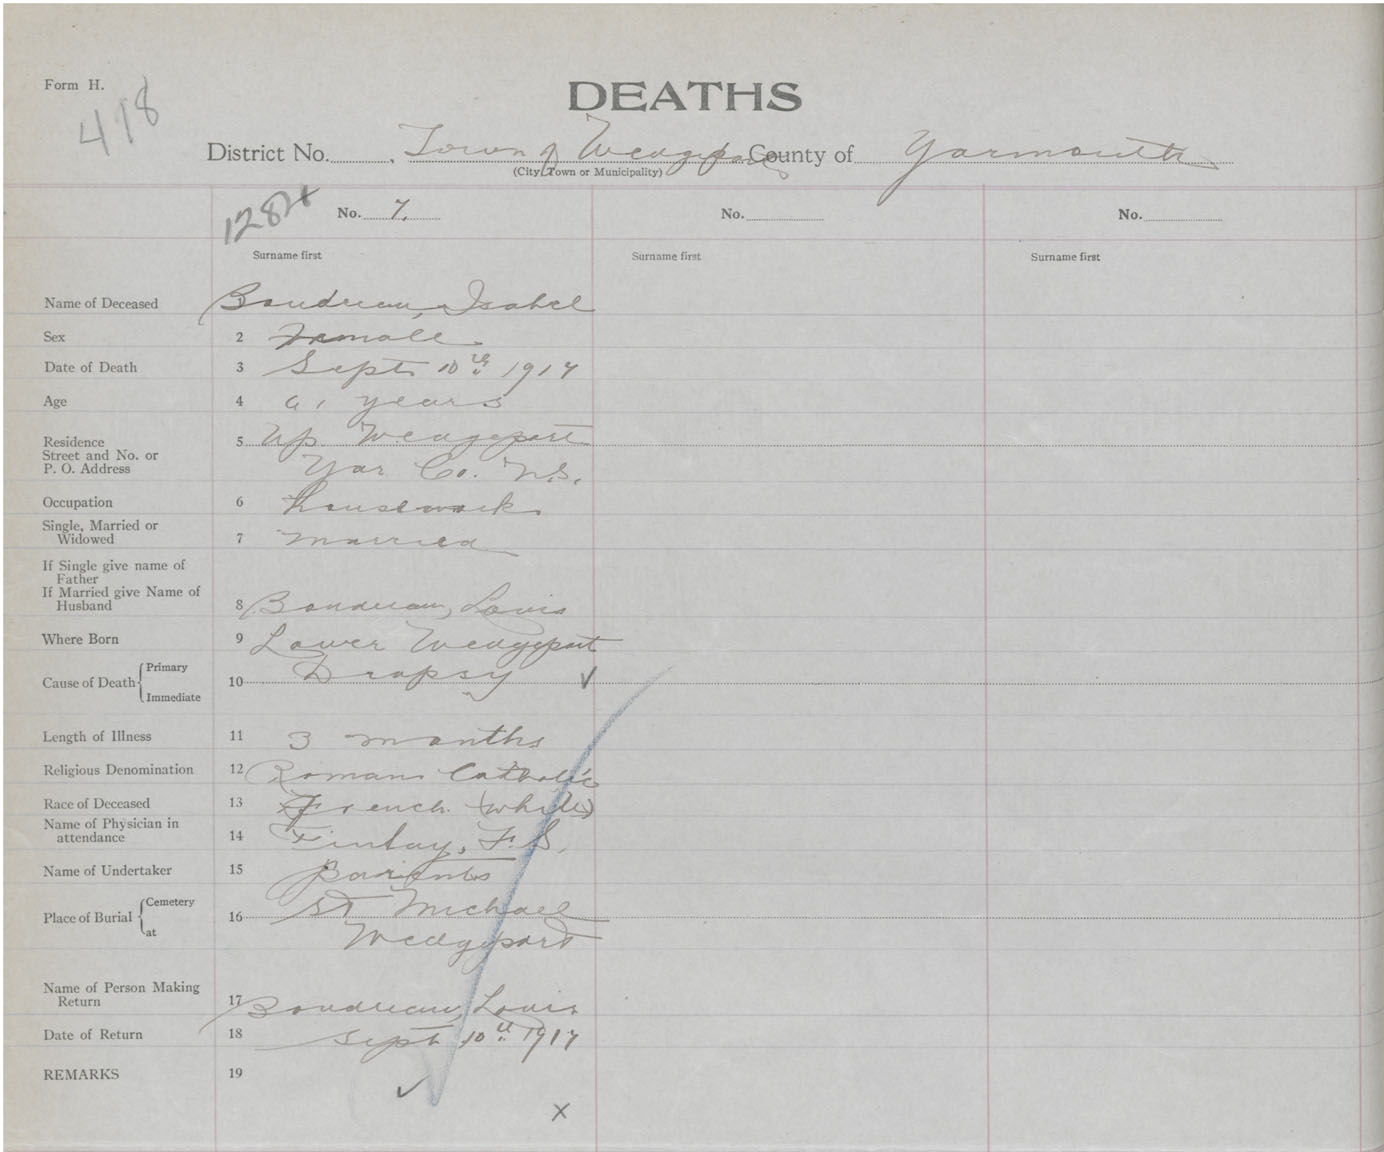 Form H.
418
DEATHS
District No. , Town of Wedgeport County of Yarmouth
(City, Town or Municipality)
No. 7. No. No.
Surname first Surname first Surname first
Name of Deceased Boudreau, Isabel
Sex 2 Female
Date of Death 3 Sept. 10th 1917
Age 4 61 years
Residence 5 Up Wedgeport
Street and No. or
P. O. Address Yar Co. N.S.
Occupation 6 housework
Single, Married or
Widowed 7 Married
If Single give name of
Father
If Married give Name of
Husband 8 Boudreau, Louis
Where Born 9 Lower Wedgeport
Cause of Death { Primary Immediate 10 Dropsy
Length of Illness 11 3 months
Religious Denomination 12 Roman Catholic
Race of Deceased 13 French (white)
Name of Physician in
attendance 14 F.S.
Name of Undertaker 15 Parents
Place of Burial { Cemetery at 16 St Michael
Wedgeport
Name of Person Making
Return 17 Boudreau, Louis
Date of Return 18 Sept 10th 1917
REMARKS 19
X